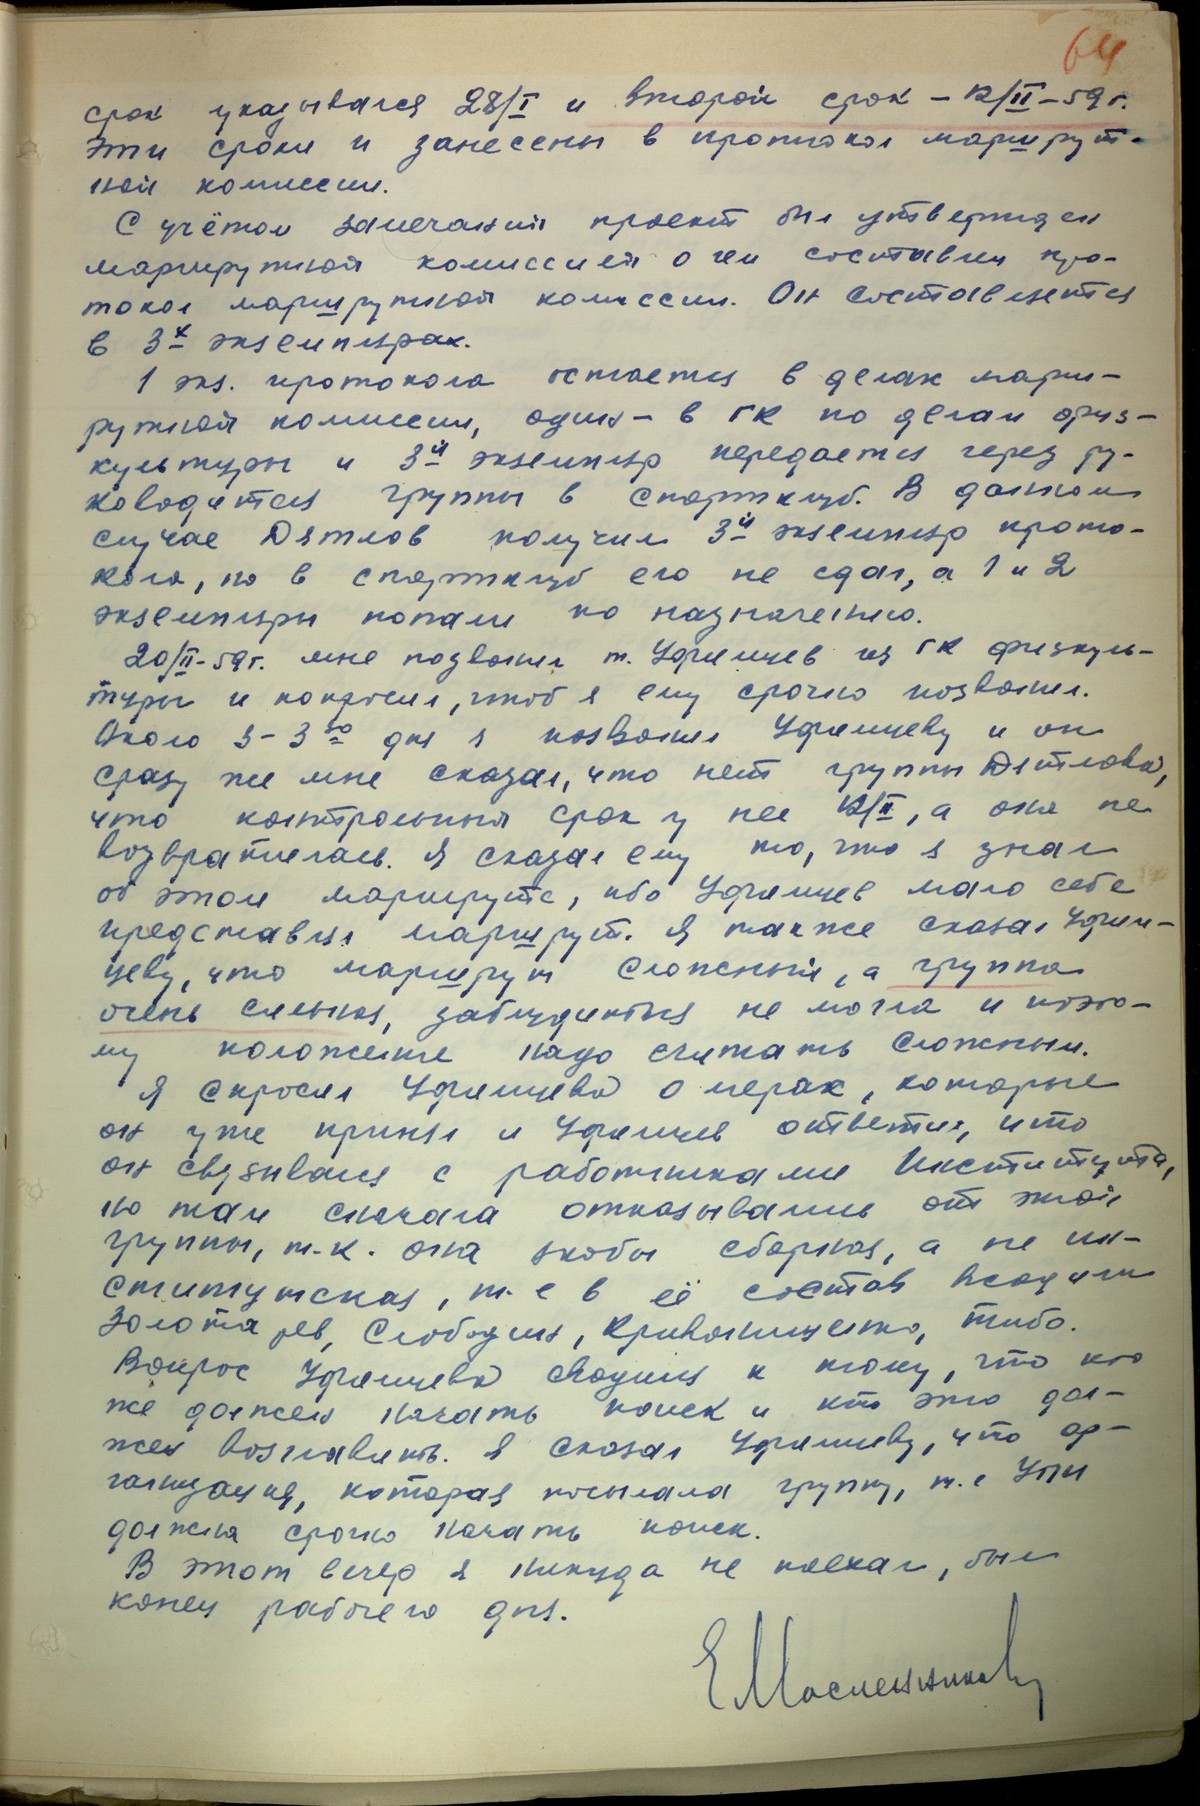 64
срок указывался 28/I и второй срок – 12/II–59 г.
Эти сроки и занесены в протокол маршрут-
ной комиссии.
С учётом замечаний проект был утвержден
маршрутной комиссией о чем составлен про-
токол маршрутной комиссии. Он составляется
в 3х экземплярах.
1 экз. протокола остается в делах марш-
рутной комиссии, один – в ГК по делам физ-
культуры и 3й экземпляр передается через ру-
ководителя группы в спортклуб. В данном
случае Дятлов получил 3й экземпляр прото-
кола, но в спортклуб его не сдал, а 1 и 2
экземпляры попали по назначению.
20/II–59 г. мне позвонил т. Уфимцев из ГК физкуль-
туры и попросил, чтоб я ему срочно позвонил.
Около 3–3 30 дня я позвонил Уфимцеву и он
сразу же мне сказал, что нет группы Дятлова,
что контрольный срок у нее 12/II, а она не
возвратилась. Я сказал ему то, что я знал
об этом маршруте, ибо Уфимцев мало себе
представлял маршрут. Я также сказал Уфим-
цеву, что маршрут сложный, а группа
очень сильная, заблудиться не могла и поэто-
му положение надо считать сложным.
Я спросил Уфимцева о мерах, которые
он уже принял и Уфимцев ответил, что
он связывался с работниками Института,
но там сначала отказывались от этой
группы, т.к. она якобы сборная, а не ин-
ститутская, т.е в её состав входили
Золотарев, Слободин, Кривонищенко, Тибо.
Вопрос Уфимцева сводился к тому, что кто
же должен начать поиск и кто это дол-
жен возглавить. Я сказал Уфимцеву, что ор-
ганизация, которая посылала группу, т.е УПИ
должна срочно начать поиск.
В этот вечер я никуда не поехал, был
конец рабочего дня.
ЕМасленников